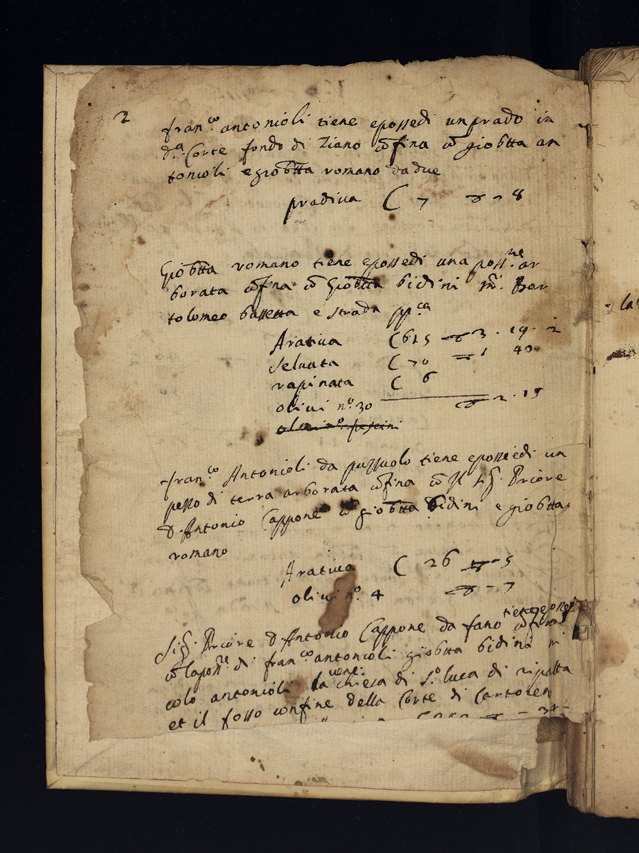 2
fran.co antonioli tiene e possedi un prado in
d.a Corte fondo di Ziano cōfina cō giobtta an
tonioli e giobtta romano da due
pradiva C 7 8
Giobtta romano tiene e possedi una poss.ne ar
borata cōfina cō Giobtta bidini Bar
tolomeo bassetta e strada pp.ca
Arativa C 615 3 . 19 . 2
Selvata C 70 1 40
rapinata C 6
olivi n.o 30 2 . 15
fran.co Antonioli da pussuolo tiene e possiedi un
pesso di terra arborata cōfina cō il Sig. Priore
d. Antonio Cappone cō giobtta bidini e giobtta
romano
Arativa C 26 5
olivi n.o 4 7
Sig. Priore d. Antonio Cappone da fano tiene e possedi
cō la poss.ne di fran.co antonioli giobtta bidini ni
colo antonioli la ven. chiesa di S.to luca di ripalta
et il fosso confine della Corte di Cartosen